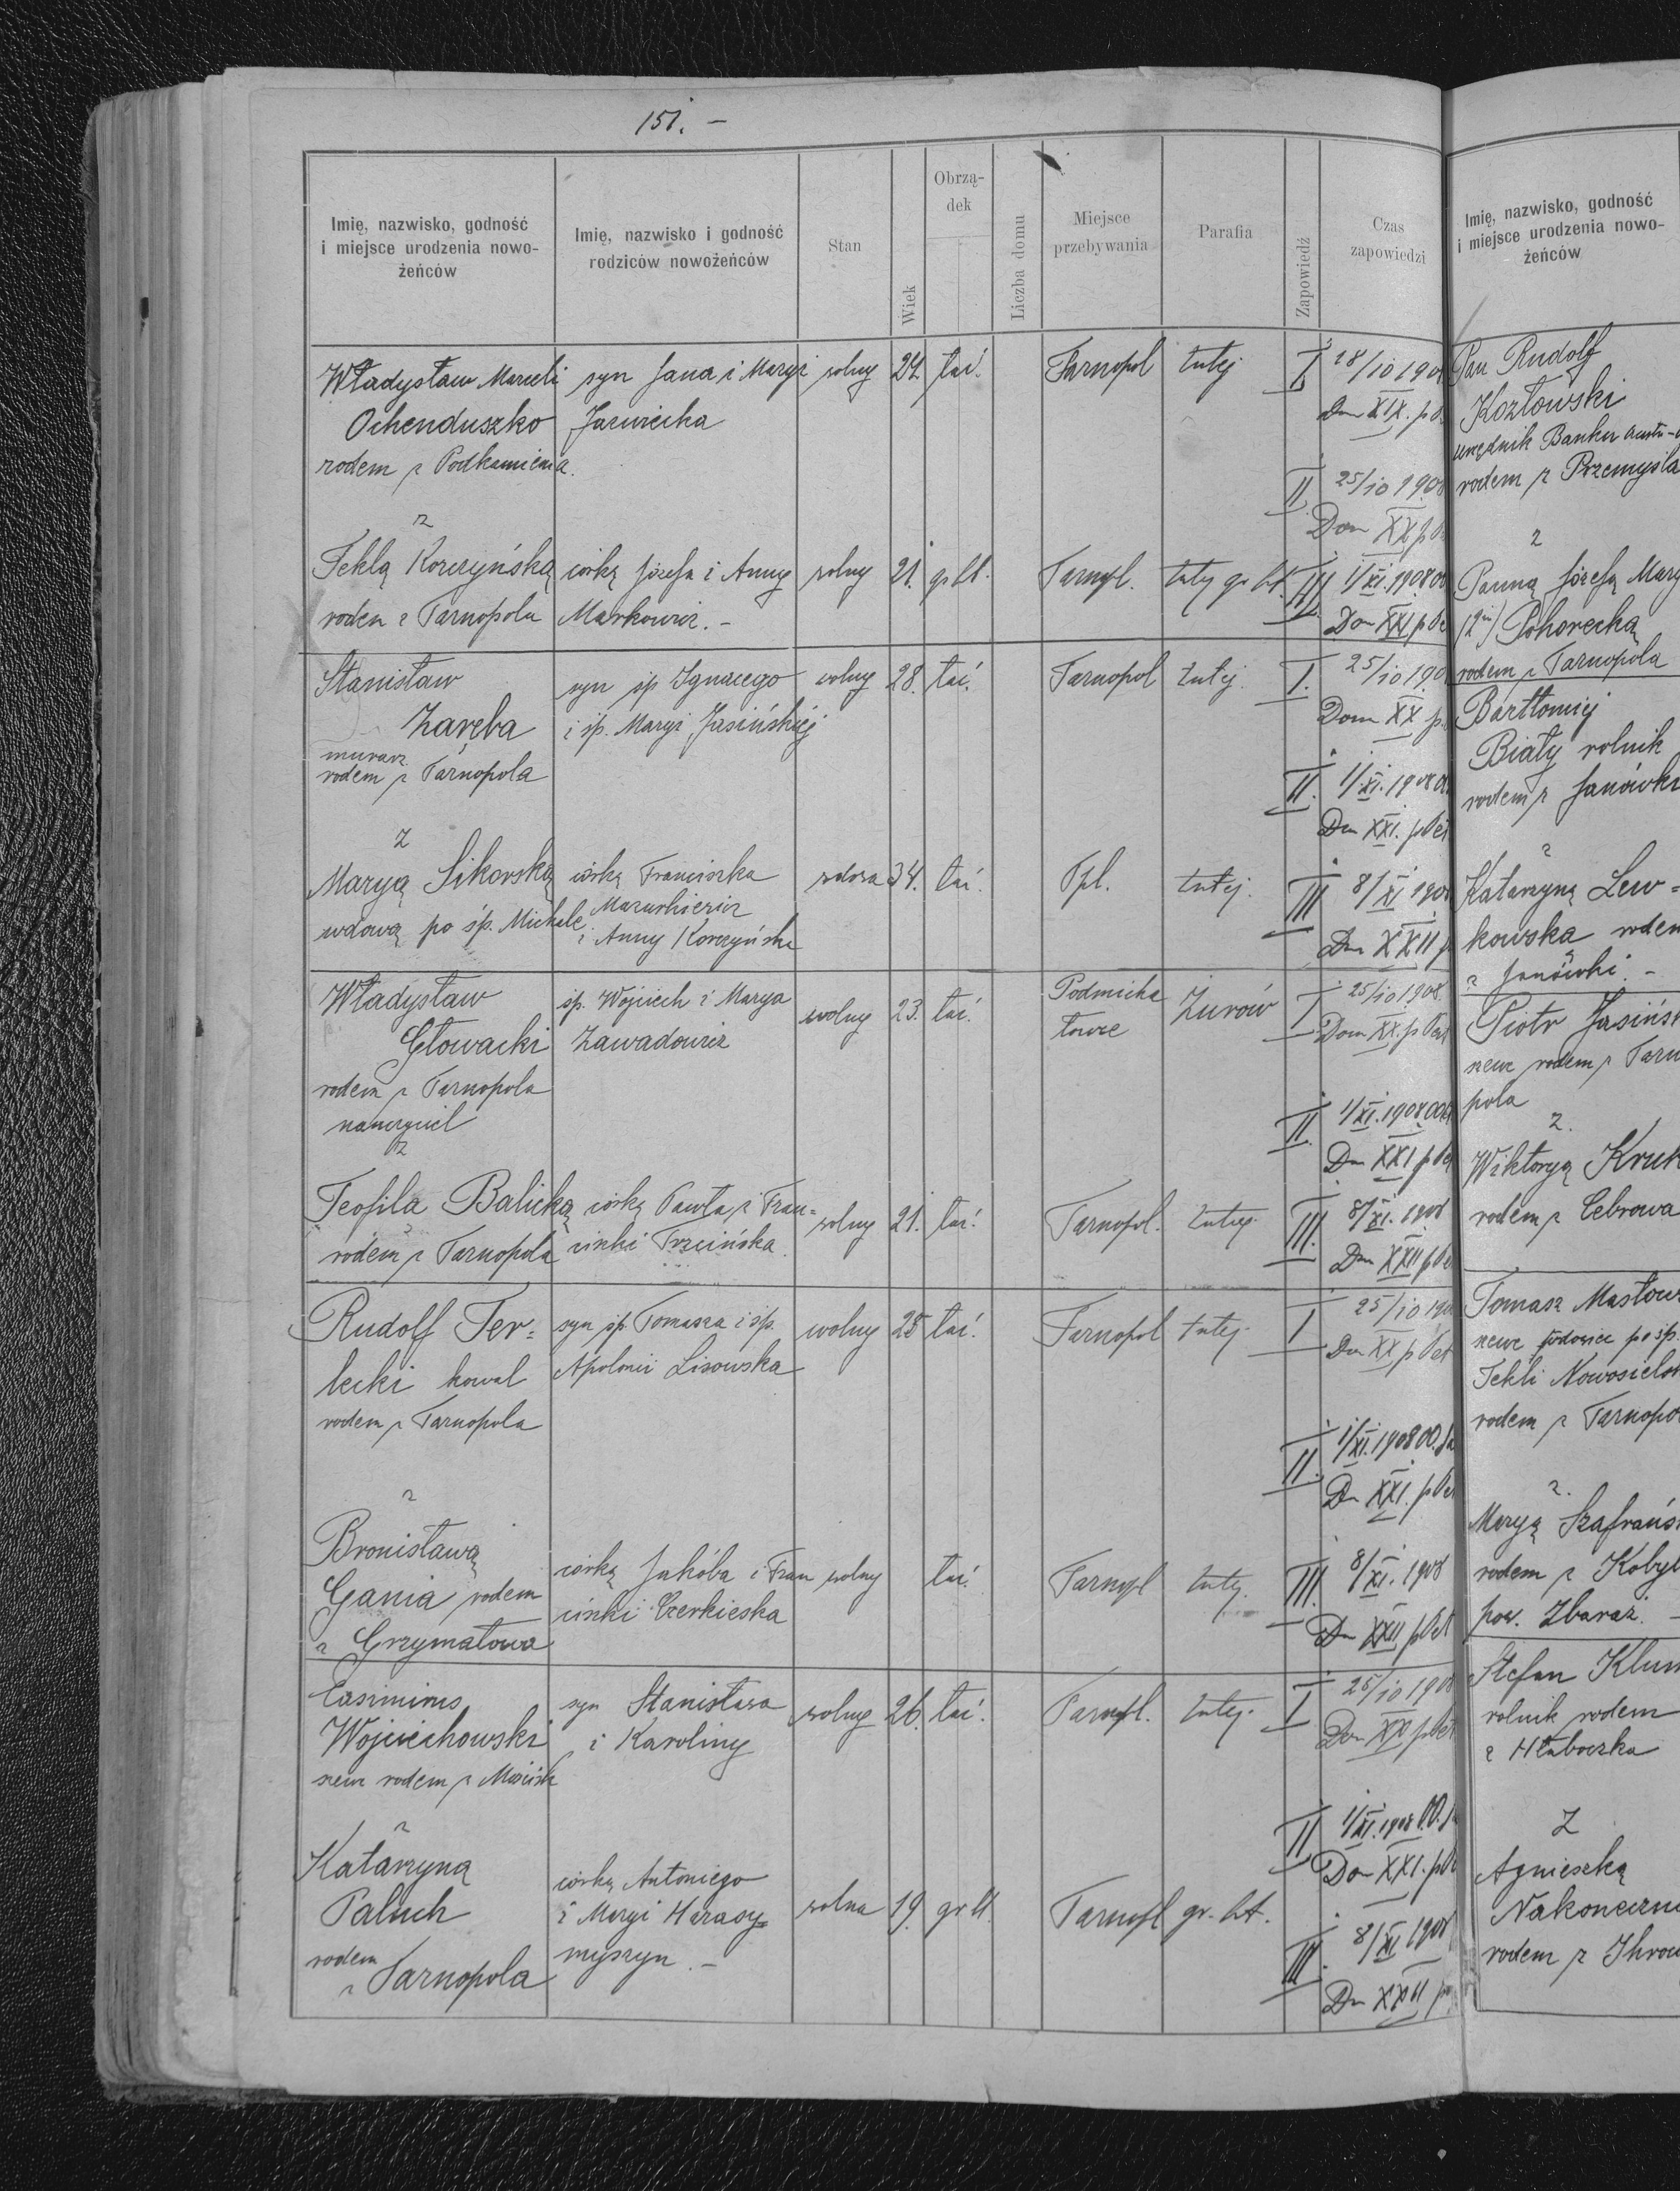 151. –
Imię, nazwisko, godność
i miejsce urodzenia nowo-
żeńców
Imię, nazwisko i godność
rodziców nowożeńców
Stan
Wiek
Obrzą-
dek
Liczba domu
Miejsce
przebywania
Parafia
Zapowiedź
Czas
zapowiedzi
Władysław Marceli syn Jana i Maryi wolny 24. łać. Tarnopol tutej I 18/10 190
Ochenduszko Dom XIX. p
rodem z Podkamienia
II 25/10 1908
z Dom XX p
Teklą Korczyńską córką Józefa i Anny wolny 21. gr kt. Tarnpl. tutej gr. kt. III 1/XI. 1908
rodem z Tarnopola Markowicz. – Dom XXI p
Stanisław syn śp Ignacego wolny 28. łać. Tarnopol tutej. I. 25/10 190
Zaręba i śp. Maryi Jasińskiej Dom XX p.
murarz
rodem z Tarnopola II. 1/XI. 1908
Dom XXI. p
z
Maryą Sikorską córką Franciszka wdowa 34. łać. Tpl. tutej. III 8/XI 190
wdową po śp. Michale i Anny Korczyńska Dom XXII p
Władysław śp. Wojciech i Marya wolny 23. łać. Podmicha Żurów I 25/10 1908.
Głowacki Zawadowicz łowce Dom XX. p
rodem z Tarnopola
nauczyciel II. 1/XI. 1908
z Dom XXI p
Teofila Balicką córką Pawła i Fran= wolny 21. łać. Tarnopol. tutej. III. 8/XI. 1908
rodem z Tarnopola ciszki Trzcińska. Dom XXII p
Rudolf Ter= syn śp. Tomasza i śp. wolny 25 łać. Tarnopol tutej. I 25/10 190
lecki kowal Apolonii Lisowska Dom XX p
rodem z Tarnopola
II. 1/XI. 1908
z Dom XXI. p
Bronisławą
Gania rodem córką Jakóba i Fran wolny łać. Tarnpl tutej. III. 8/XI. 1908
z Grzymałowa ciszki Czerkieska Dom XXII p
Casimirus syn Stanisława wolny 26. łać. Tarnpl. tutej. I 25/10 1908
Wojciechowski i Karoliny Dom XX p
szewc rodem z
z II 1/XI. 1908
Katarzyną Dom XXI. p
Paluch córką Antoniego wolna 19. gr kt. Tarnopl gr. kt.
rodem i Maryi Harasy= III. 8/XI 1908
z Tarnopola myszyn. – Dom XXII p
Imię, nazwisko, godność
i miejsce urodzenia nowo-
żeńców
Pan Rudolf
Kozłowski
urzędnik Banku Austr-
rodem z Przemyśla
z
Panną Józefą Mary
(2im) Pohorecką
rodem z Tarnopola
Bartłomiej
Biały rolnik
rodem z Janówki
z
Katarzyną Lew=
kowska rodem
z Janówki. –
Piotr Jasińs
szewc rodem z Tarn
pola
z.
Wiktoryą Kruk
rodem z Cebrowa
Tomasz Masłow
szewc wdowiec po śp.
Tekli Nowosiels
rodem z Tarnopo
z.
Maryą Szafrańs
rodem z Kobyl
pow. Zbaraż. –
Stefan Klim
rolnik rodem
z Hłuboczka
z
Agnieszką
Nakoneczn
rodem z Ihrow